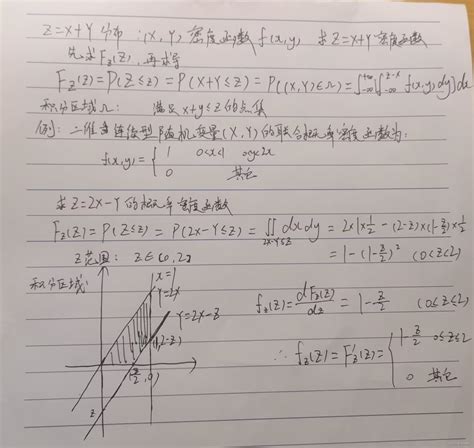 Z=X+Y 分布：(X,Y) 密度函数 f(x,y) 求Z=X+Y 密度函数
先求F_Z(Z)，再求导
F_Z(Z)=P(Z≤z)=P(X+Y≤z)=P((X,Y)∈Ω)=∫_{-∞}^{+∞}[∫_{-∞}^{z-x} f(x,y)dy]dx
积分区域Ω： 满足x+y≤z的点集
例：二维连续型随机变量(X,Y)的联合概率密度函数为：
f(x,y)={ 1 0<x<1 0<y<2x
0 其它
求Z=2X-Y的概率密度函数
F_Z(Z)=P(Z≤z)=P(2X-Y≤z)=∬_{2x-y≤z} dxdy=2×1×1/2-(2-z)×(1-z/2)×1/2
Z范围： Z∈(0,2) =1-(1-z/2)² (0<z<2)
积分区域：
x=1
y=2x
y=2x-z
(1,2-z)
(z/2,0)
z
f_Z(Z)=dF_Z(Z)/dz=1-z/2 (0≤z≤2)
∴ f_Z(Z)=F_Z'(Z)={ 1-z/2 0≤z≤2
0 其它